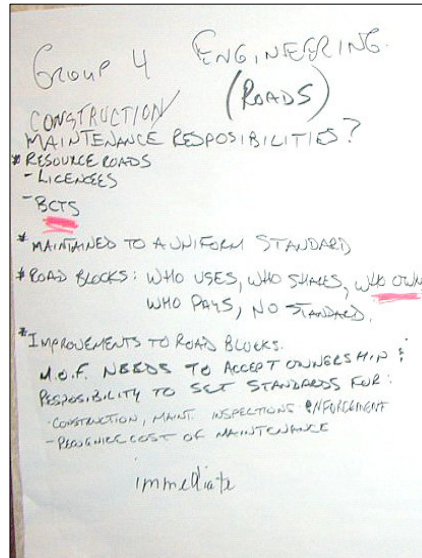 Group 4 ENGINEERING.
(ROADS)
CONSTRUCTION/
MAINTENANCE RESPOSIBILITIES?
* RESOURCE ROADS
- LICENCEES
- BCTS
* MAINTAINED TO A UNIFORM STANDARD
* ROAD BLOCKS: WHO USES, WHO SHARES, WHO OWN
WHO PAYS, NO STANDARD.
* IMPROVEMENTS TO ROAD BLOCKS.
M.O.F. NEEDS TO ACCEPT OWNERSHIP &
RESPOSIBILITY TO SET STANDARDS FOR:
- CONSTRUCTION, MAINT. INSPECTIONS ENFORCEMENT
- RECOGNIZE COST OF MAINTENANCE
immediate